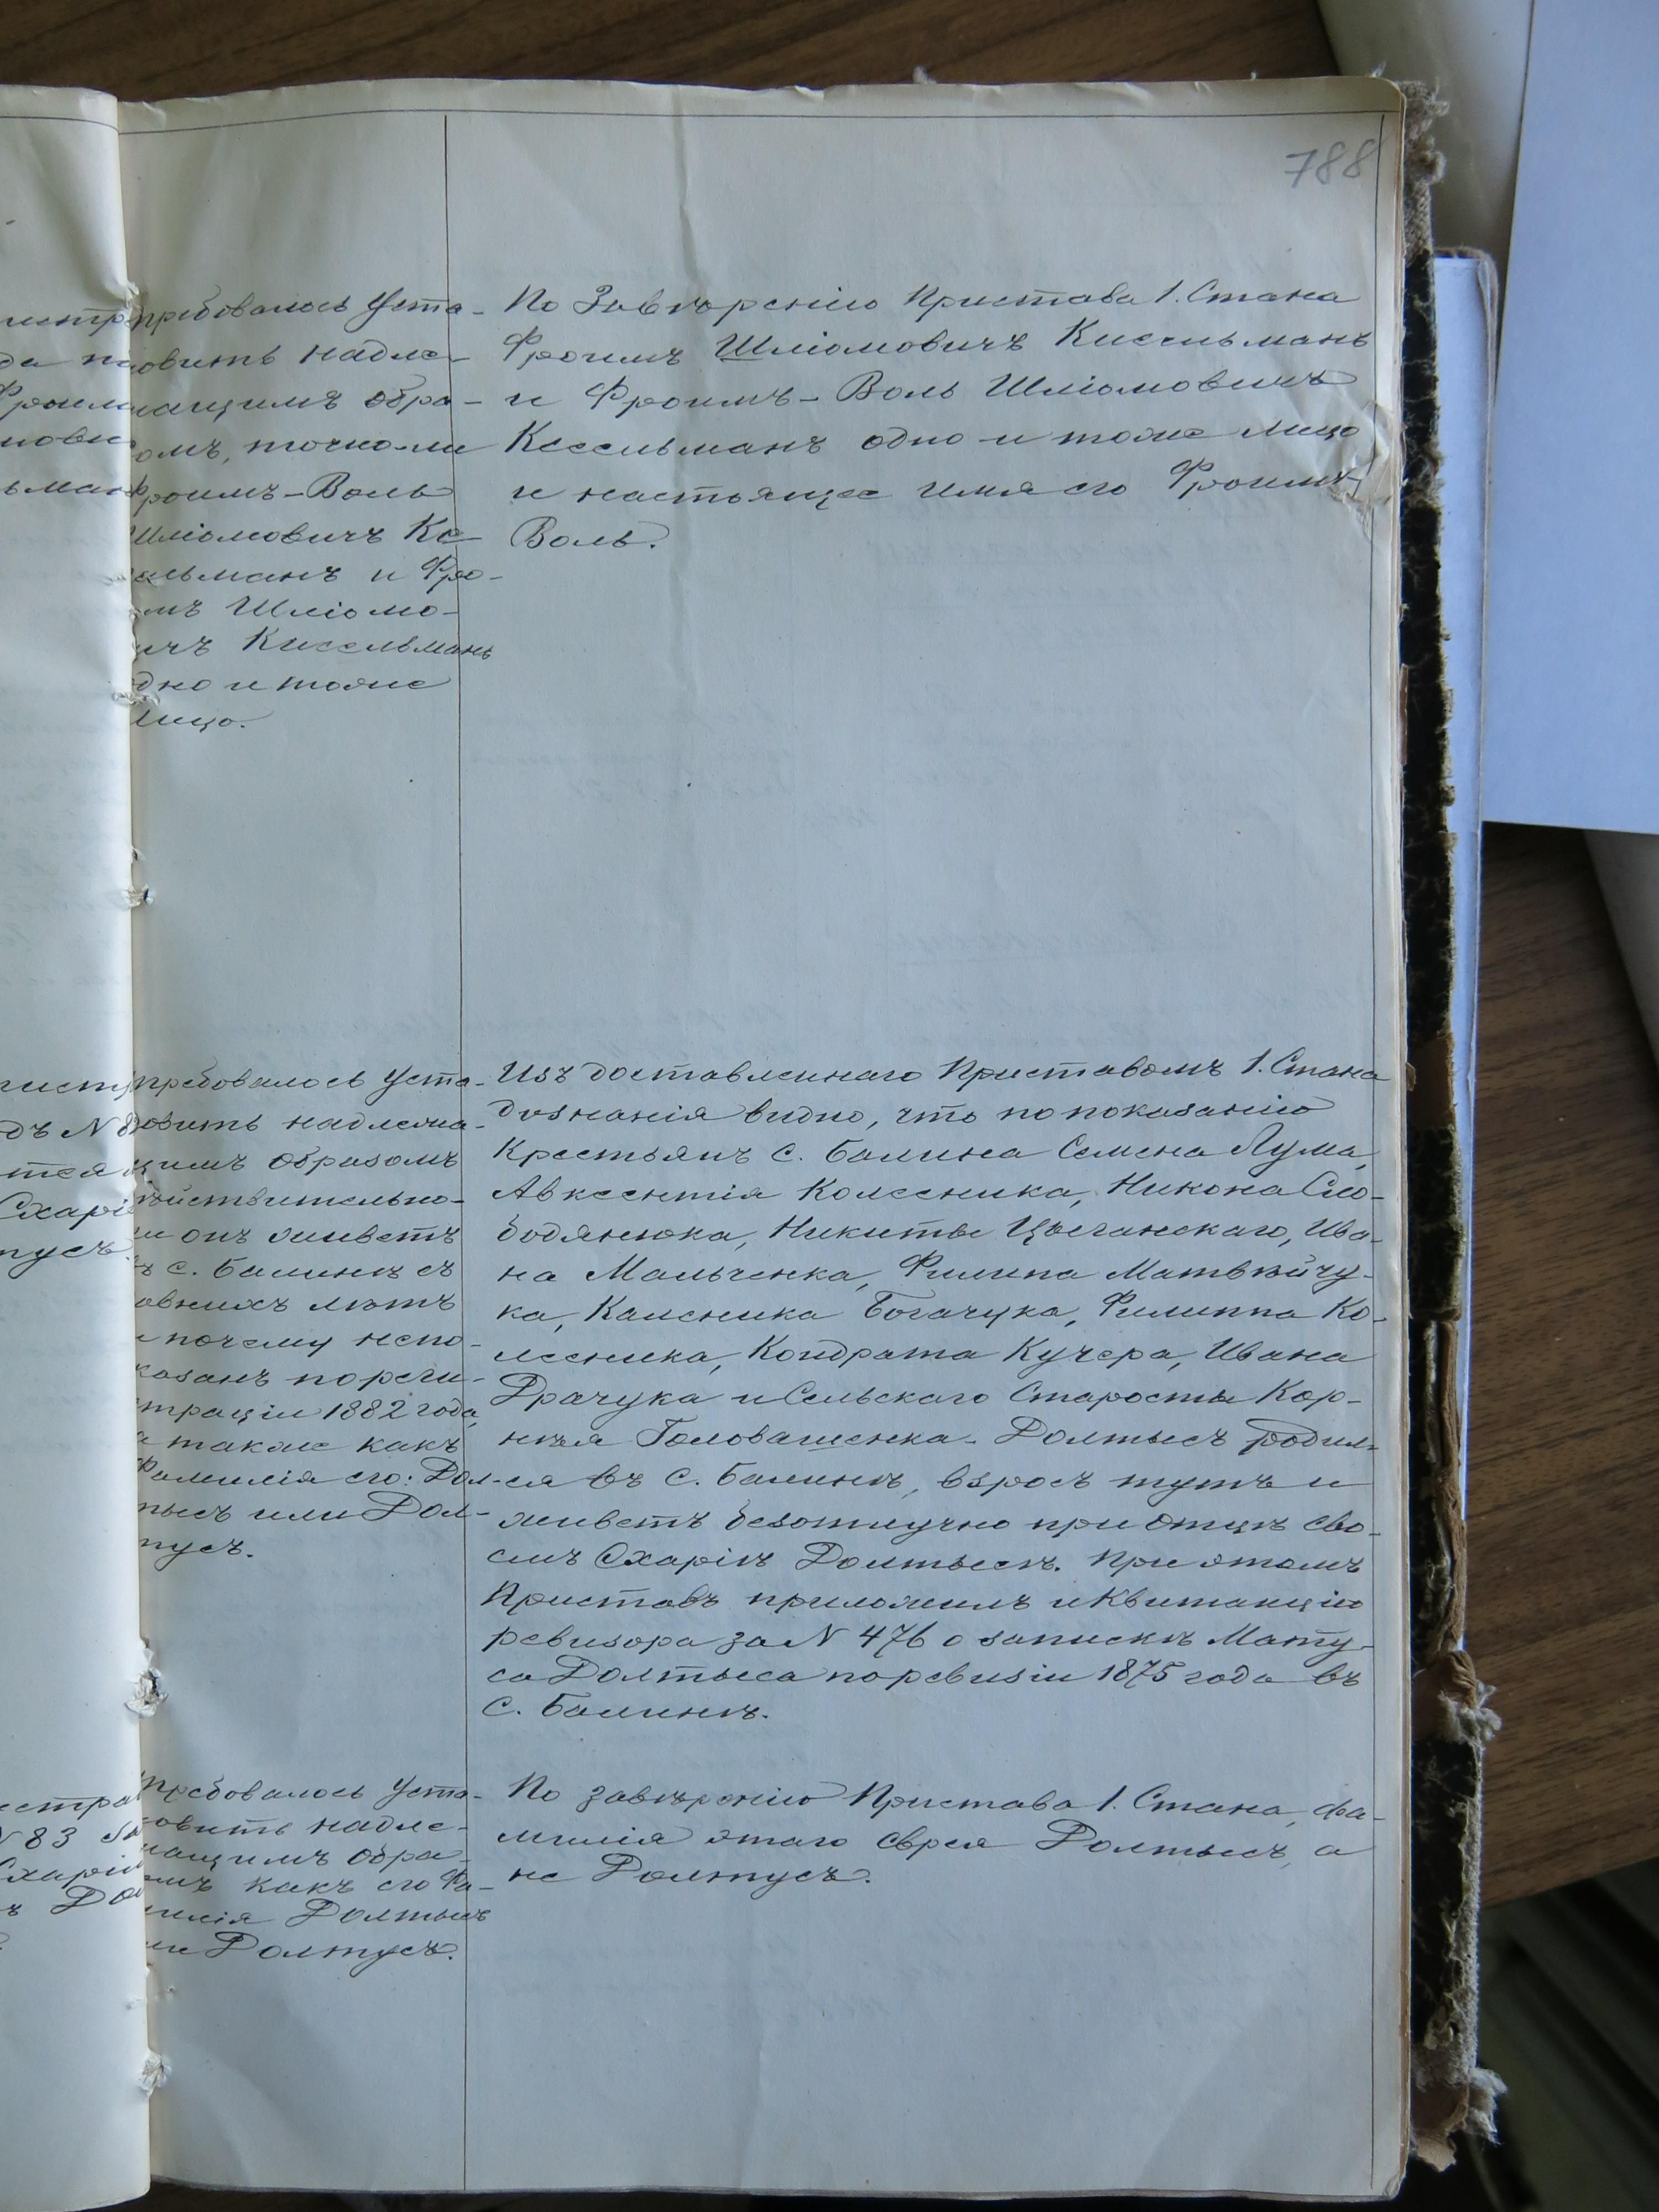 788
требовалось уста-
овить надле-
ащимъ обра-
омъ, точно-ли
Фроимъ-Воль
Шліомовичъ Ке-
ельманъ и Фро-
мъ Шліомо-
ичъ Кисельманъ
дно и тоже
лицо.
По Завѣренію Пристава 1. Стана
Фроимъ Шліомовичъ Кисельманъ
и Фроимъ-Воль Шліомовичъ
Кесельманъ одно и тоже лицо
и настоящее имя его Фроимъ-
Воль.
требовалось уста-
овить надлежа-
щимъ образомъ
дѣйствительно-
ли онъ живетъ
въ с. Балинѣ съ
авнихъ лѣтъ
и почему непо-
казанъ порегис-
траціи 1882 года,
а также какъ
Фамилія его: Дол-
тысъ или Дол-
тусъ.
Изъ доставленнаго Приставомъ 1. Стана
дознанія видно, что по показанію
Крестьянъ с. Балина Семена Лума,
Авксентія Колесника, Никона Сло-
бодянюка, Никиты Цыганскаго, Ива-
на Мальченка, Филипа Матвѣйчу-
ка, Каленика Богачука, Филиппа Ко-
лесника, Кондрата Кучера, Ивана
Драчука и Сельскаго Старосты Кор-
нѣя Головашенка. Долтысъ родил-
ся въ с. Балинѣ, взросъ тутъ и
живетъ безотлучно при Отцѣ сво-
емъ Схаріѣ Долтысѣ. При этомъ
Приставъ приложилъ и Квитанцію
ревизора за N 476 о запискѣ Мату-
са Долтыса поревизіи 1875 года въ
С. Балинѣ.
требовалось уста-
овить надле-
ащимъ обра-
омъ какъ его Фа-
милія Долтысъ
или Долтусъ.
По завѣренію Пристава 1. Стана, фа-
милія этаго Еврея Долтысъ, а
не Долтусъ.